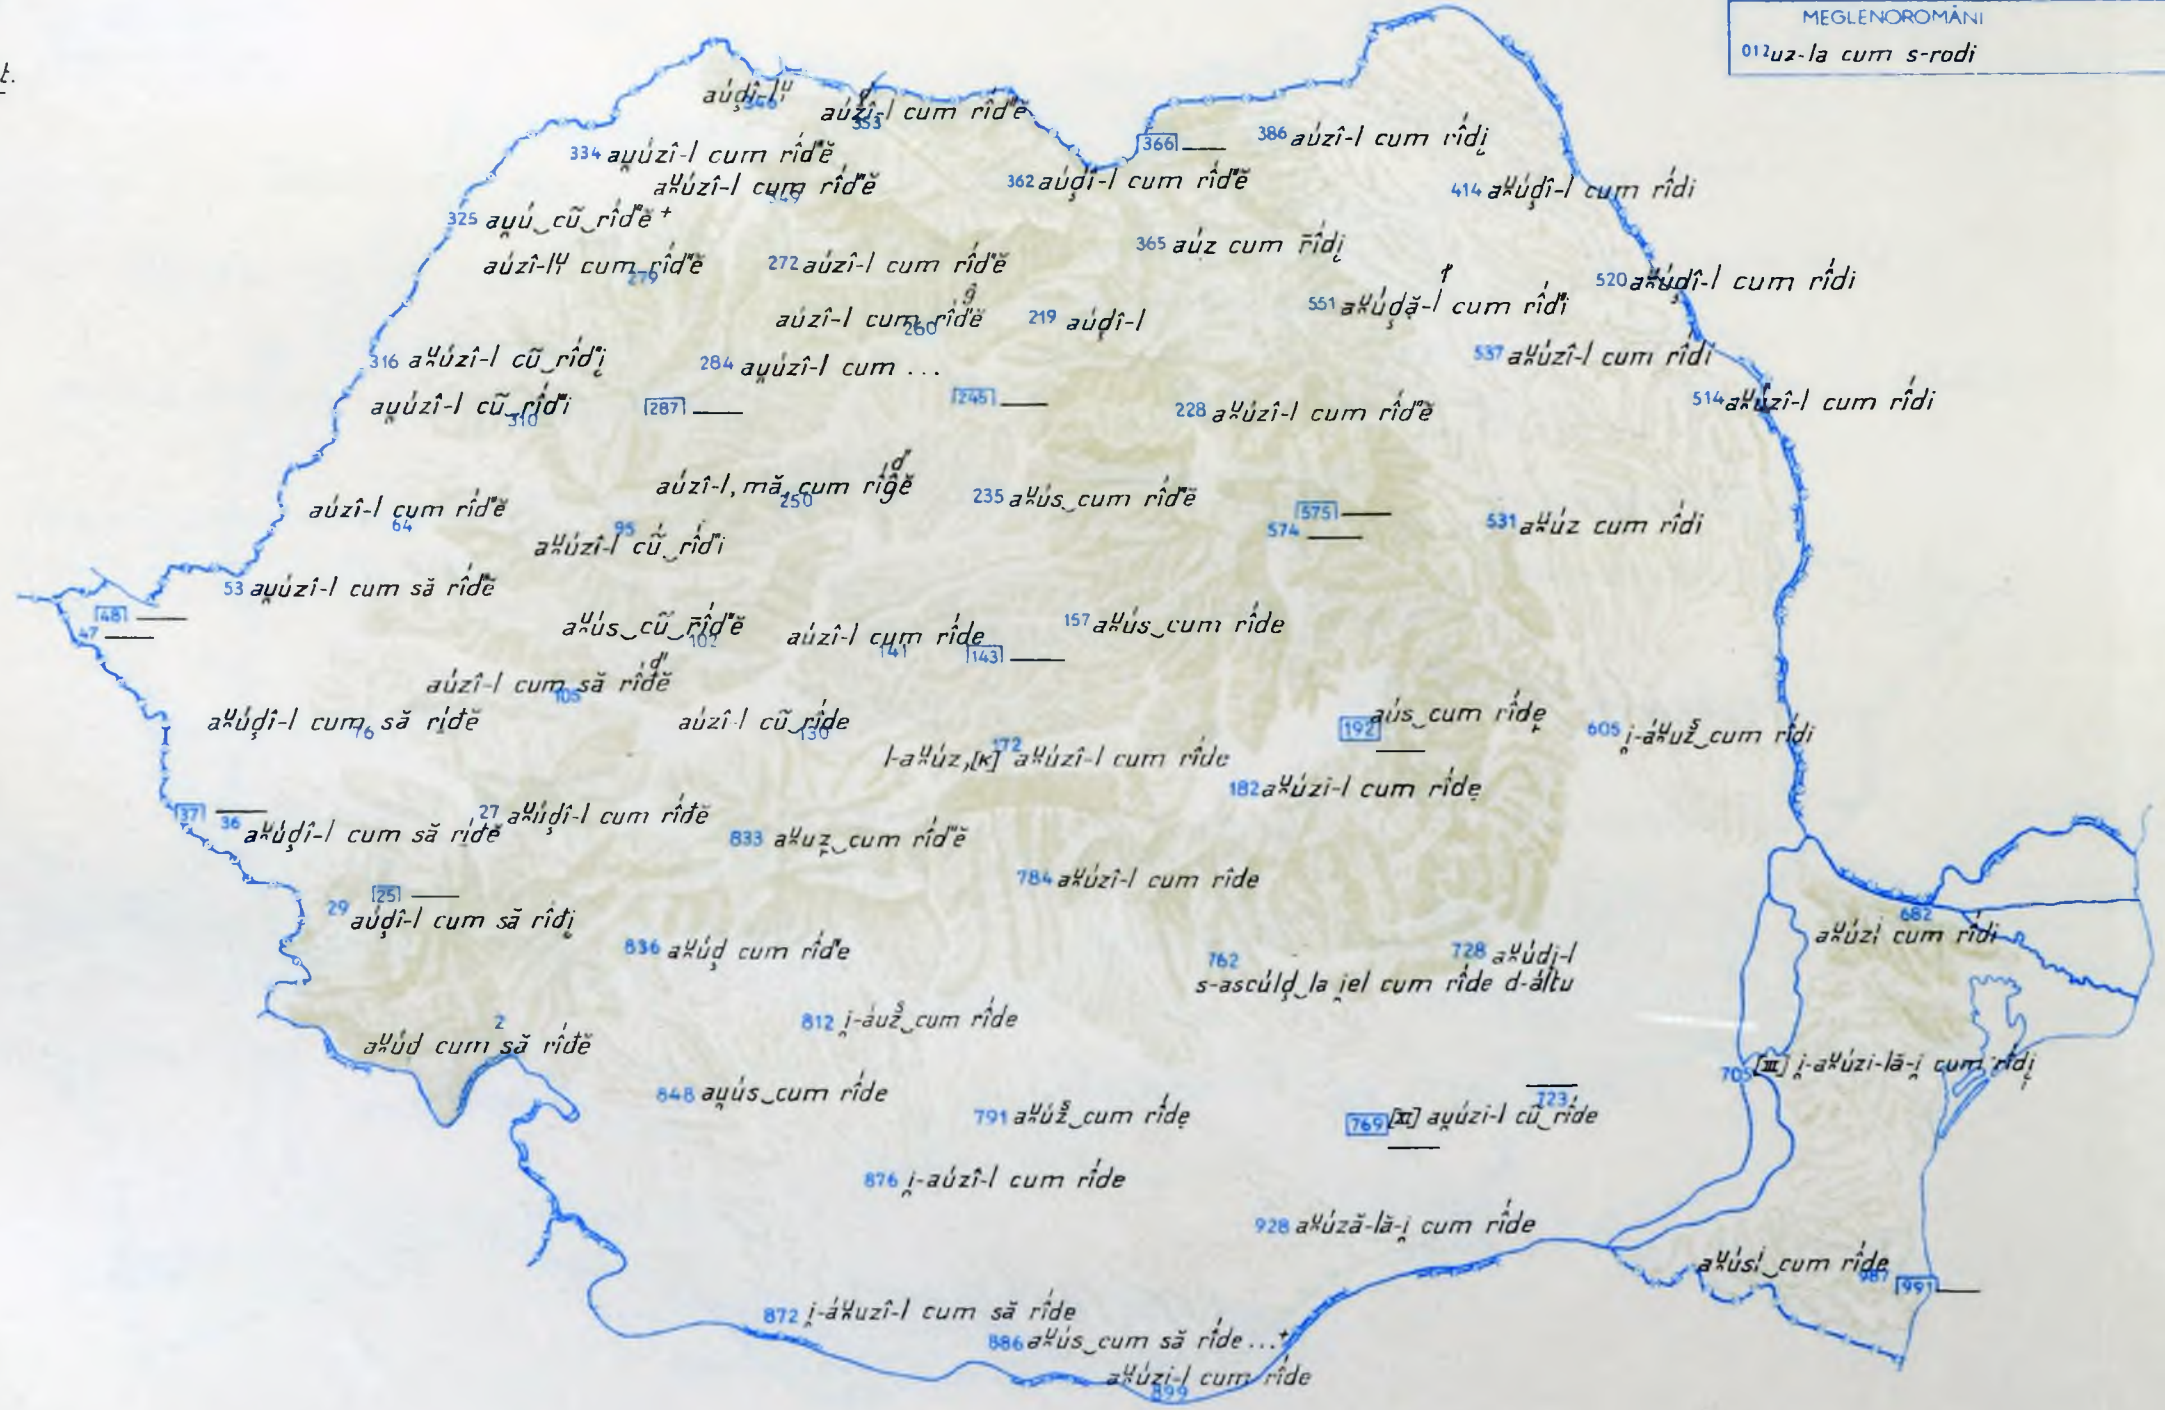 MEGLENOROMÂNI
012 uz-la cum s-rodi
t.
346 aúḑî-lᶙ
353 aúzî-l cum rî́d̆ĕ
334 au̯úzî-l cum rî́d̆ĕ
349 aᵘúzî-l cum rî́d̆ĕ
366 ——
386 aúzî-l cum rî́di̯
362 aúḑî-l cum rî́d̆ĕ
414 aᵘúḑî-l cum rî́di
325 au̯ú‿cũ‿rî́d̆ĕ +
365 aúz cum r̄î́di̯
279 aúzî-lᶙ cum rî́d̆ĕ
272 aúzî-l cum rî́d̆ĕ
520 aᵘúḑî-l cum rî́di
551 aᵘúḑă-l cum rî́d̆i
260 aúzî-l cum rî́d̆ĕ
219 aúḑî-l
537 aᵘúzî-l cum rî́di
316 aᵘúzî-l cũ‿rî́d̆i̯
284 au̯úzî-l cum ...
310 au̯úzî-l cũ‿rî́d̆i
287 ——
245 ——
228 aᵘúzî-l cum rî́d̆ĕ
514 aᵘúzî-l cum rî́di
250 aúzî-l, mă, cum rî́ĝĕ
235 aᵘús‿cum rî́d̆ĕ
64 aúzî-l cum rî́d̆ĕ
575 ——
574 ——
531 aᵘúz cum rî́di
95 aᵘúzî-l cũ‿rî́d̆i
53 au̯úzî-l cum să rî́d̆ĕ
48 ——
47 ——
102 aᵘús‿cũ‿r̄î́d̆ĕ
141 aúzî-l cum rî́de
143 ——
157 aᵘús‿cum rî́de
105 aúzî-l cum să rî́đĕ
76 aᵘúḑî-l cum să rî́đĕ
130 aúzî-l cũ‿rî́de
192 aús‿cum rî́dẹ
——
605 i̯-áᵘuž‿cum rî́di
172 l-aᵘúz, [K] aᵘúzî-l cum rî́de
182 aᵘúzi-l cum rî́dẹ
37 ——
36 aᵘúḑî-l cum să rî́đĕ
27 aᵘúḑî-l cum rî́đĕ
833 aᵘuz‿cum rî́d̆ĕ
784 aᵘúzî-l cum rî́de
25 ——
29 aúḑî-l cum să rî́đi̯
682 aᵘúzi cum rî́di
836 aᵘúḑ cum rî́d̆e
762 s-ascúlḑ‿la i̯el cum rî́de d-áltu
728 aᵘúdi̯-l
812 i̯-áuž‿cum rî́de
2 aᵘúd cum să rî́đĕ
705 [III] i̯-aᵘúzi-lă-i̯ cum rî́di̯
848 au̯ús‿cum rî́de
791 aᵘúž‿cum rî́dẹ
723 ——
769 [XI] au̯úzi-l cũ‿rî́de
——
876 i̯-aúzî-l cum rî́de
928 aᵘúză-lă-i̯ cum rî́de
987 aᵘúsⁱ‿cum rî́de
991 ——
872 i̯-áᵘuzî-l cum să rî́de
886 aᵘús‿cum să rî́de...+
899 aᵘúzi-l cum rî́de